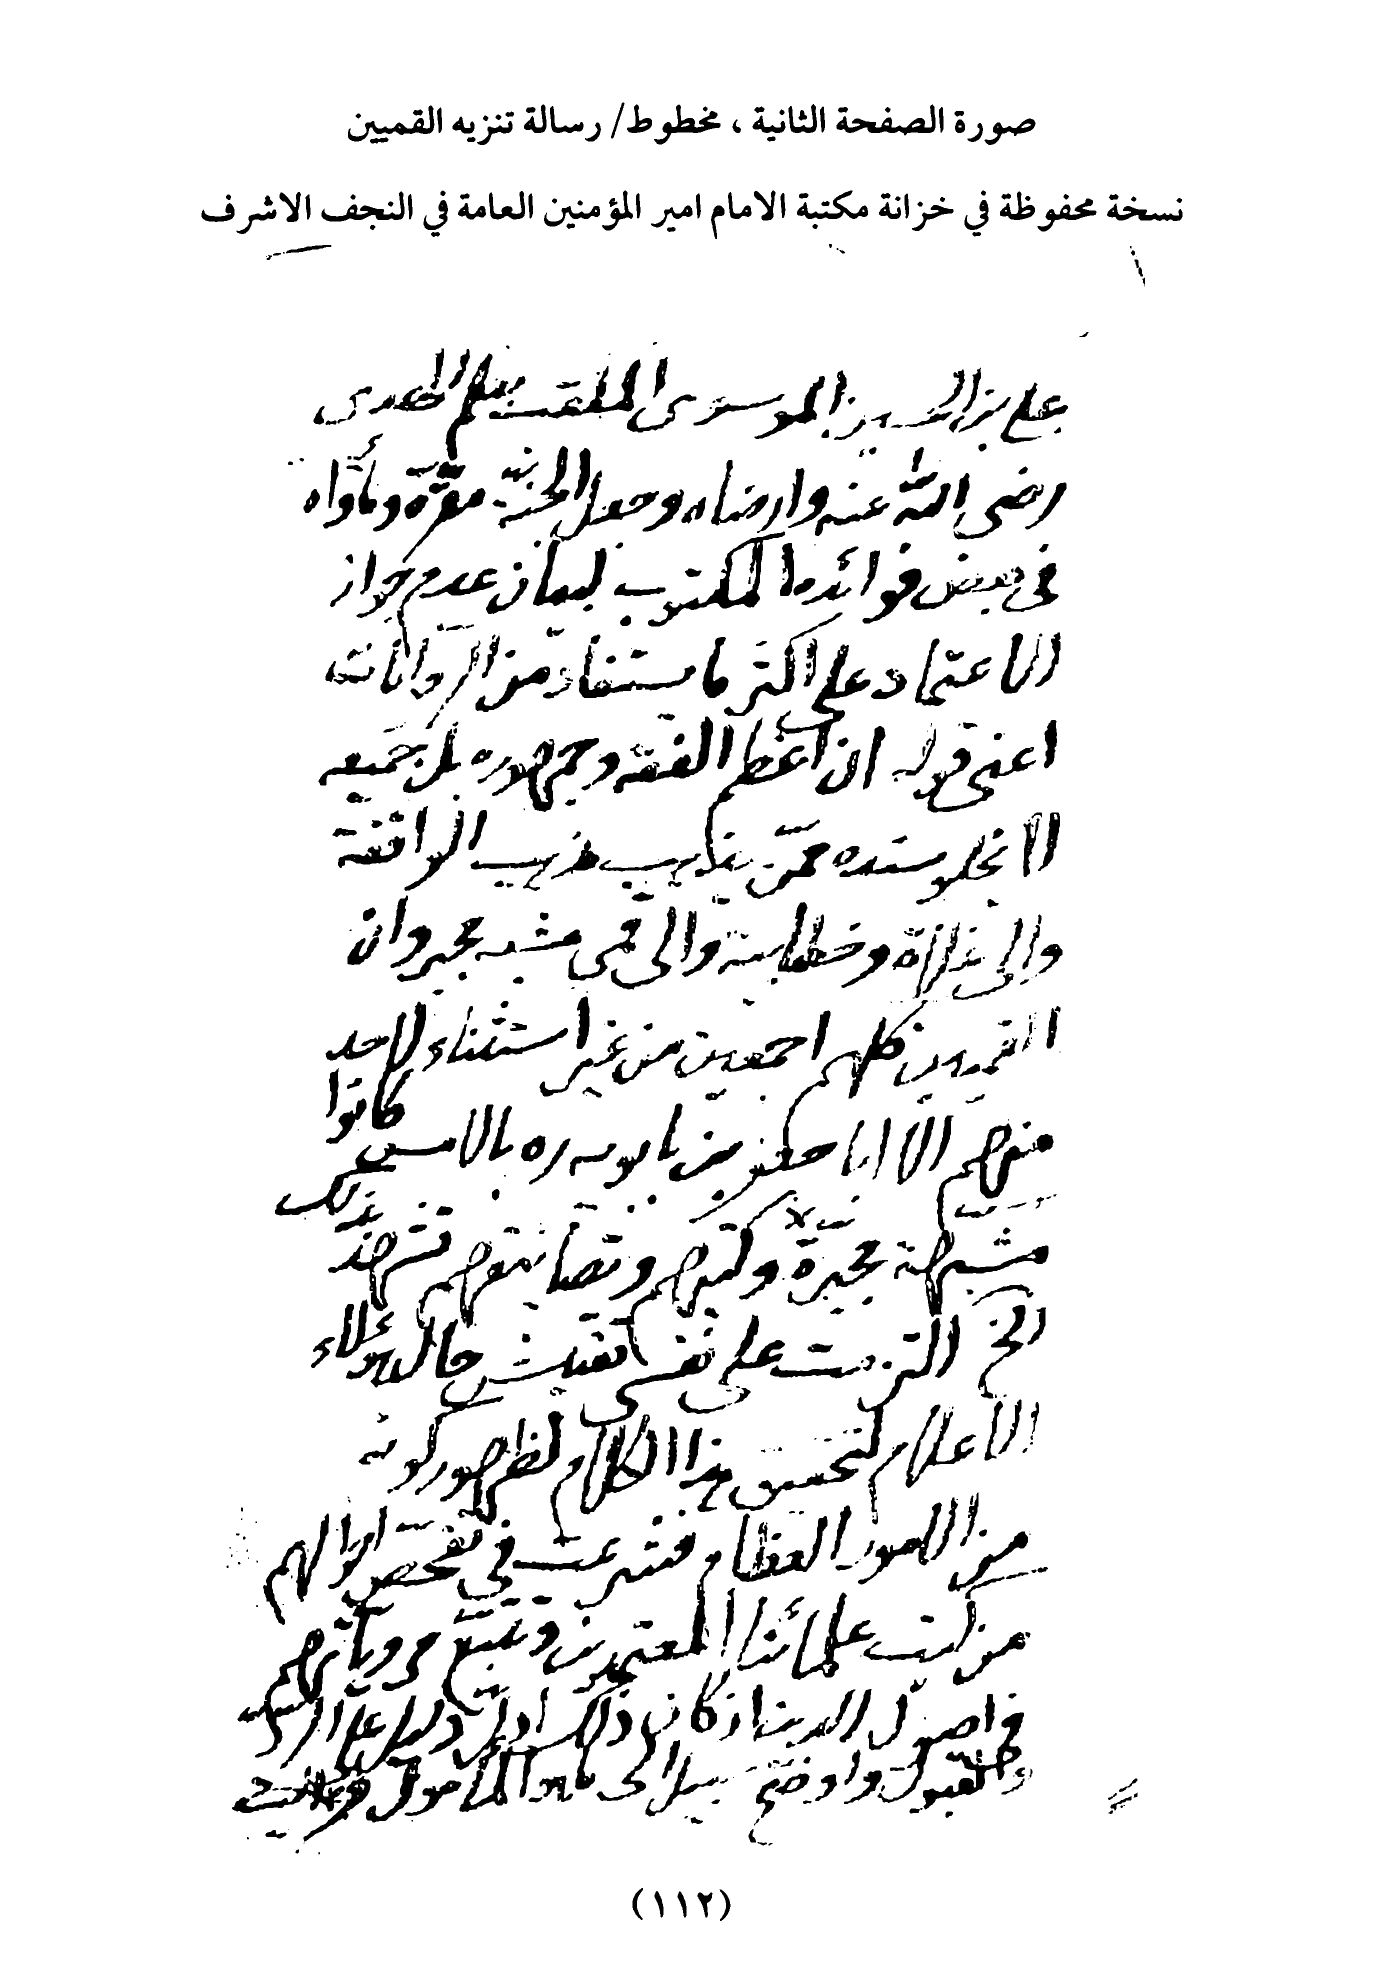 صورة الصفحة الثانية ، مخطوط/ رسالة تنزيه القميين
نسخة محفوظة في خزانة مكتبة الامام امير المؤمنين العامة في النجف الاشرف
علي بن الحسين الموسوى الملقب بعلم الهدى
رضى الله عنه وارضاه وجعل الجنة مقرّه ومأواه
فى بعض فوائده المكتوب لبيان عدم جواز
الاعتماد على اكثر ما يستفاد من الروايات
اعنى قوله ان اعظم الفقه وجمهوره بل جميعه
لا يخلو سنده ممّن يذهب مذهب الواقفة
والى غلاة وخطابية والى قمى مشبه مجبر وان
القميين كلهم اجمعين من غير استثناء لاحد
منهم الا ابا جعفر بن بابويه ره بالامس كانوا
مشبّهة مجبّرة وكتبهم وتصانيفهم تشهد بذلك
الخ التزمت على نفسى تفتيش حال هؤلاء
الاعلام لتحقيق هذا الكلام لظهور كونه
من الامور العظام فشرعت في تفحص احوالهم
من كتب علمائنا المعتمدين وتتبّع مروياتهم
في اصول الدين اذ كان ذلك ادلّ دليل على الرد
والقبول واوضح سبيل الى هذا المأمول
(١١٢)